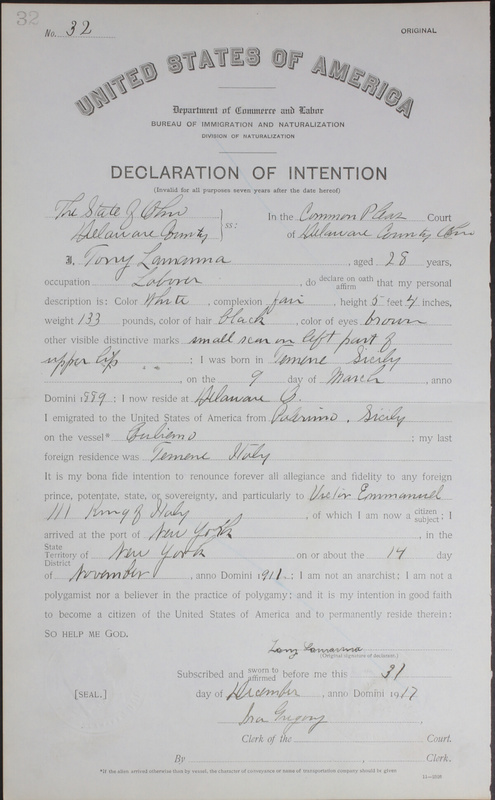 32
No. 32
ORIGINAL
UNITED STATES OF AMERICA
Department of Commerce and Labor
BUREAU OF IMMIGRATION AND NATURALIZATION
DIVISION OF NATURALIZATION
DECLARATION OF INTENTION
(Invalid for all purposes seven years after the date hereof)
The State of Ohio
Delaware County
ss:
In the Common Pleas Court
of Delaware County Ohio
I, Tony Lamanna, aged 28 years,
occupation Laborer, do declare on oath affirm that my personal
description is: Color White, complexion fair, height 5 feet 4 inches,
weight 133 pounds, color of hair black, color of eyes brown
other visible distinctive marks small scar on left part of
upper lip : I was born in Temene Sicily
, on the 9 day of March, anno
Domini 1889 ; I now reside at Delaware O.
I emigrated to the United States of America from, Sicily
on the vessel* : my last
foreign residence was Temene Italy
It is my bona fide intention to renounce forever all allegiance and fidelity to any foreign
prince, potentate, state, or sovereignty, and particularly to Victor Emmanuel
III King of Italy, of which I am now a citizen subject; I
arrived at the port of New York, in the
State Territory District of New York on or about the 14 day
of November, anno Domini 1911 : I am not an anarchist; I am not a
polygamist nor a believer in the practice of polygamy; and it is my intention in good faith
to become a citizen of the United States of America and to permanently reside therein:
SO HELP ME GOD.
Tony Lamanna
(Original signature of declarant.)
Subscribed and sworn to affirmed before me this 31
[SEAL.]
day of December, anno Domini 1917
Ira Gregory
Clerk of the Court.
By , Clerk.
*If the alien arrived otherwise than by vessel, the character of conveyance or name of transportation company should be given